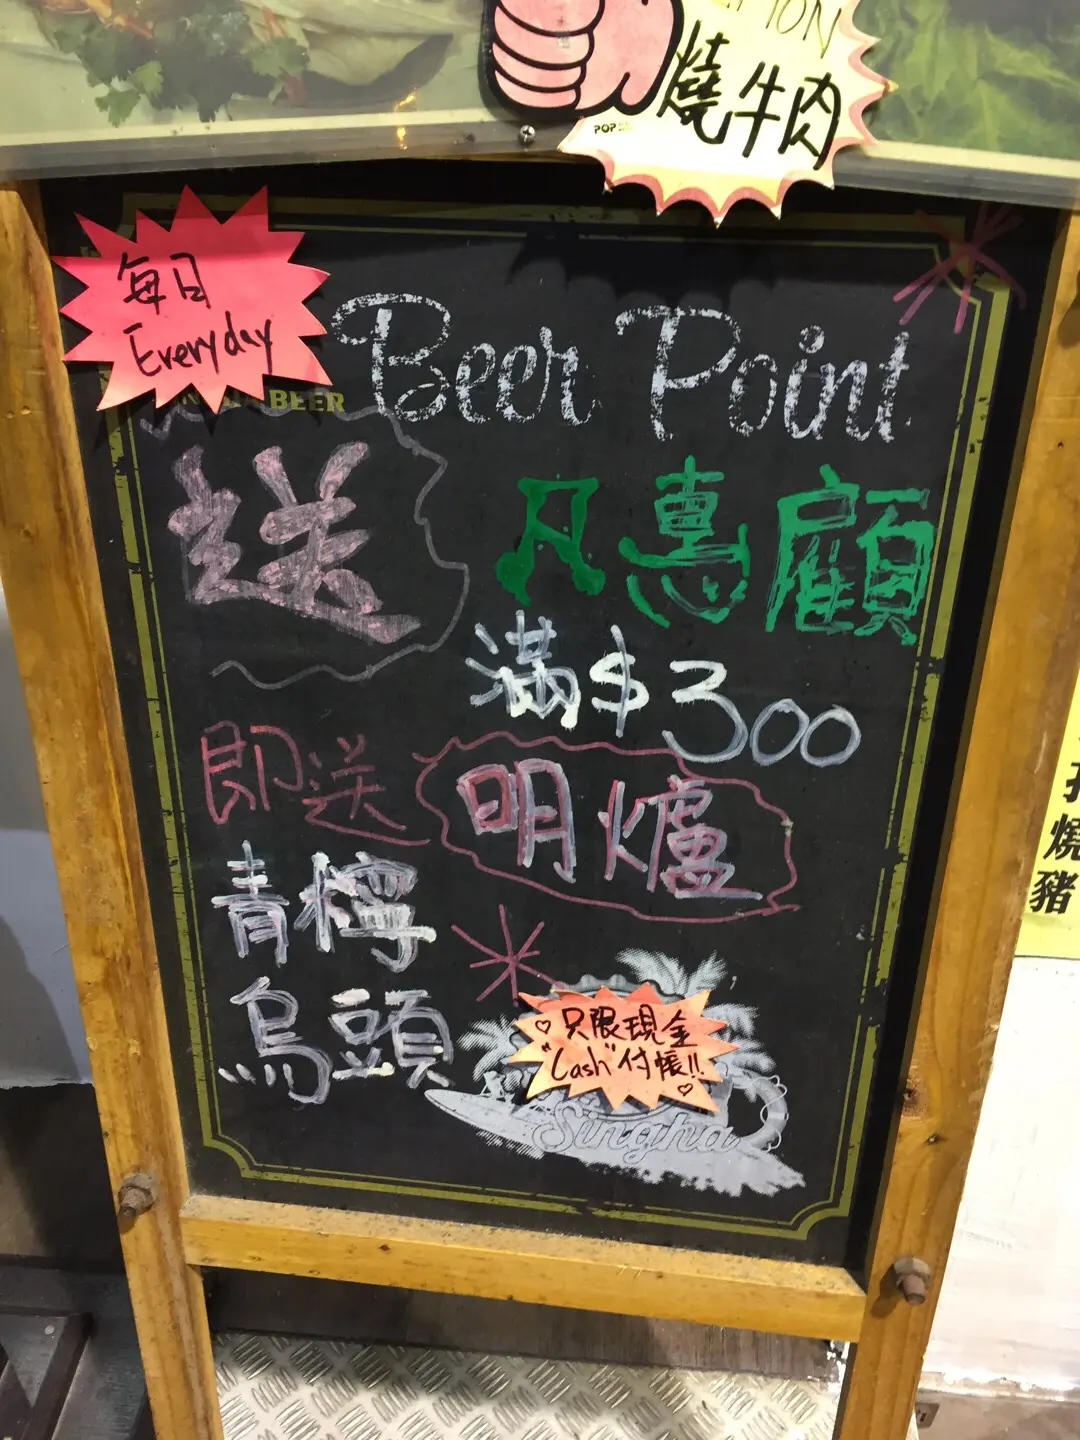 燒牛肉
POP
每日
Everyday
BEER
Beer Point
送
凡惠顧
滿$300
即送
明爐
青檸
烏頭
只限現金
"Cash"付帳!!
Singha
燒
豬